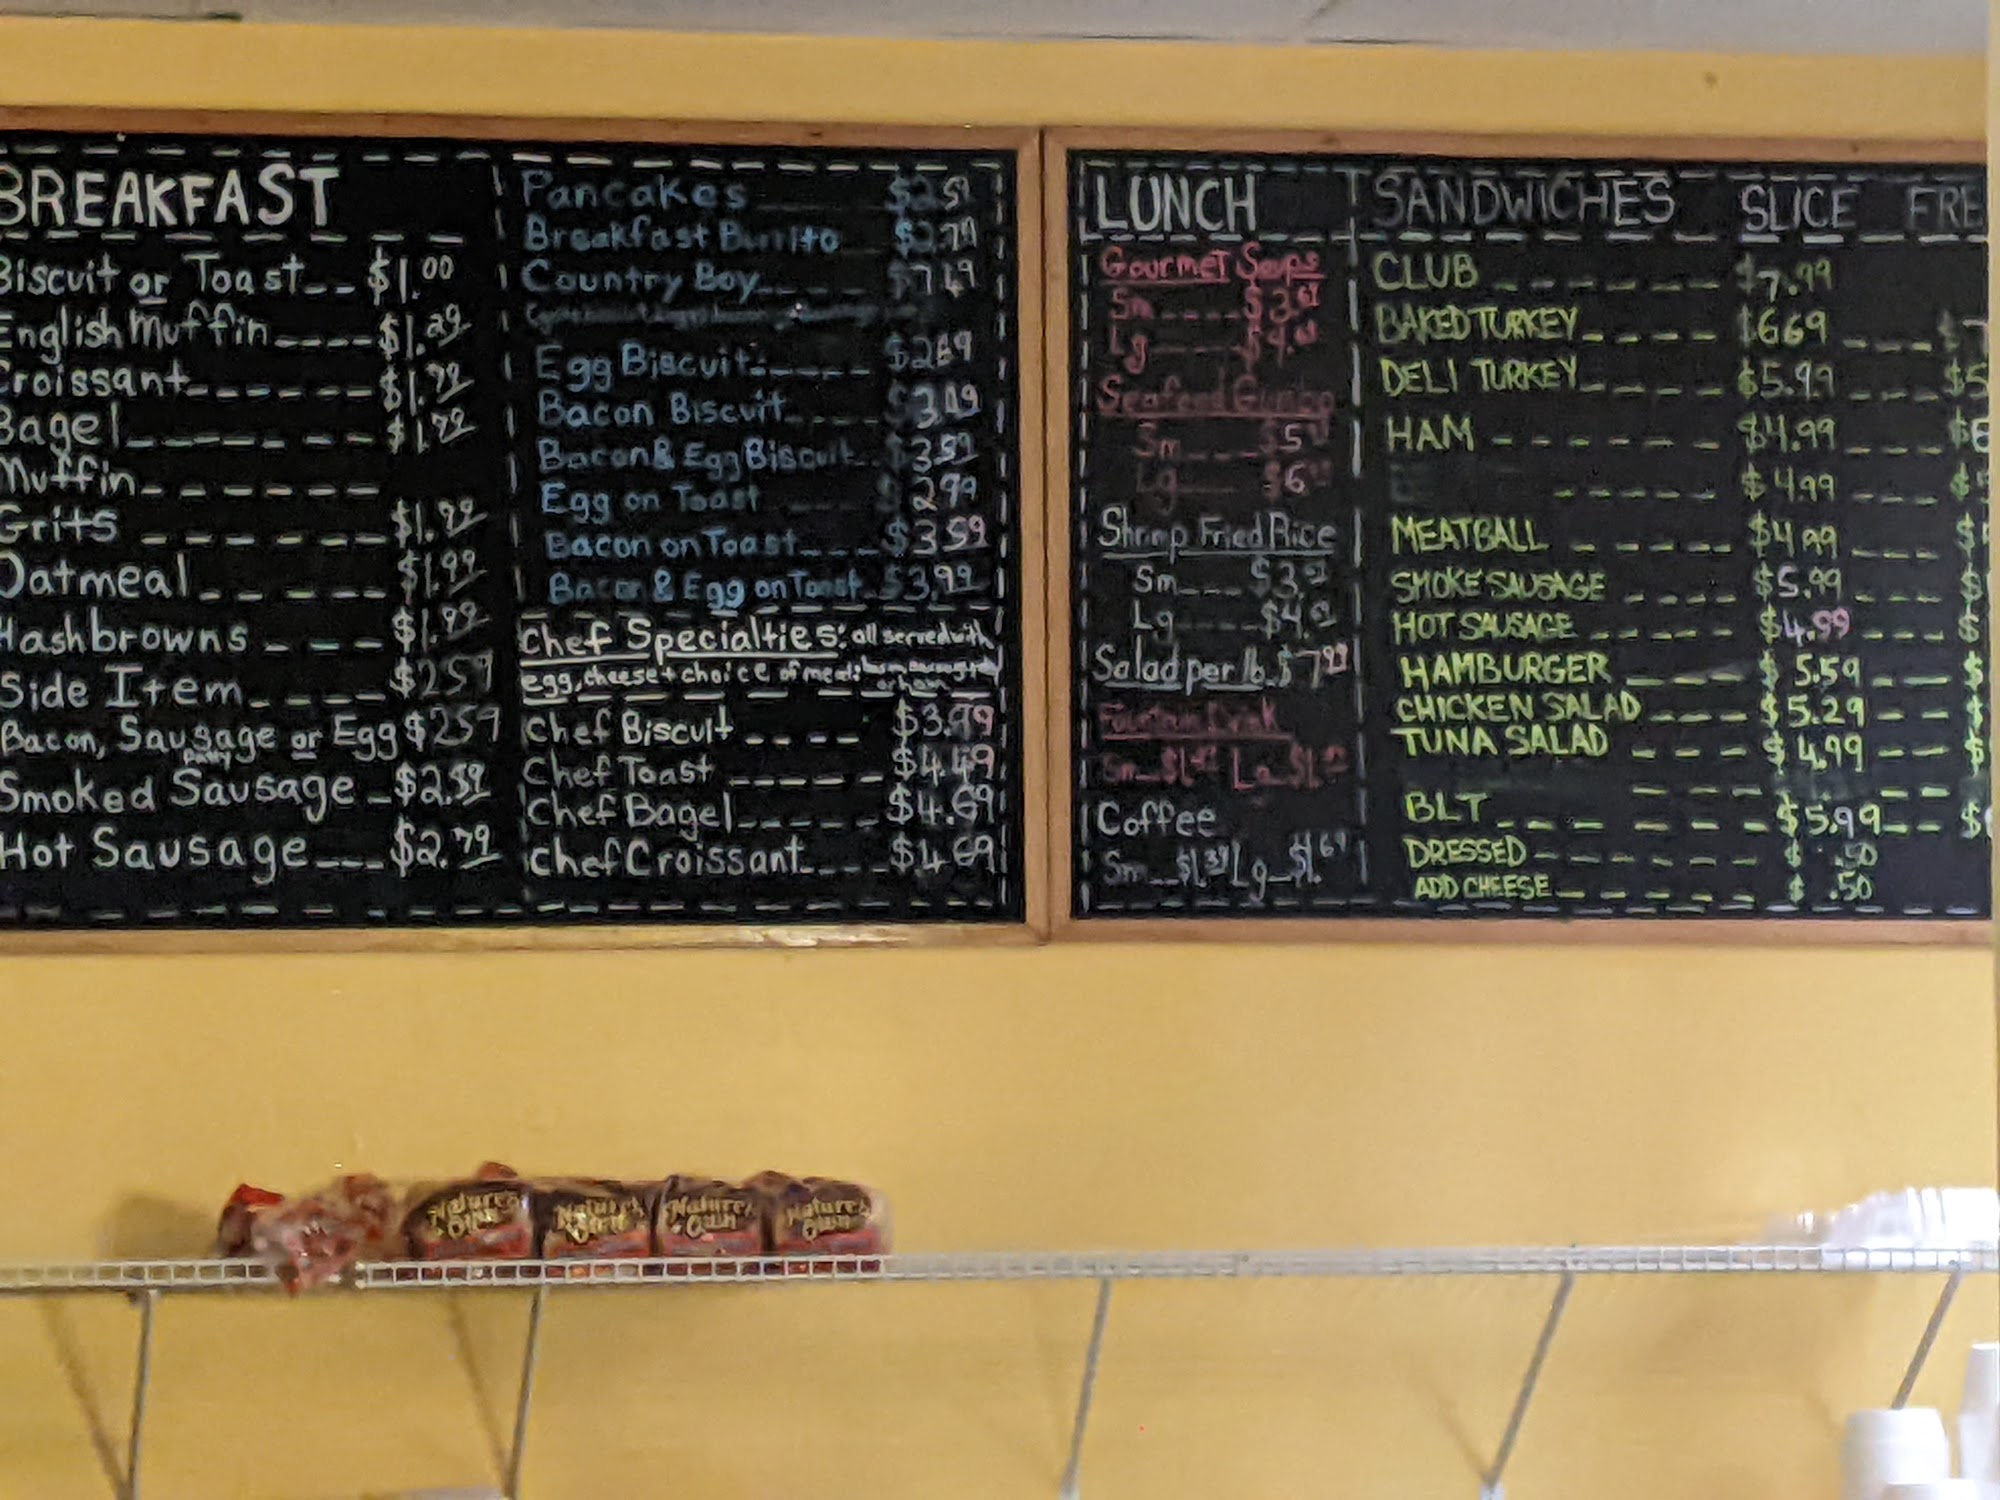 BREAKFAST
Biscuit or Toast $1.00
English Muffin $1.29
Croissant $1.79
Bagel $1.79
Muffin
Grits $1.99
Oatmeal $1.99
Hashbrowns $1.99
Side Item $2.59
Bacon, Sausage or Egg $2.59
Patty
Smoked Sausage $2.59
Hot Sausage $2.79
Pancakes $2.59
Breakfast Burrito
Country Boy
Egg Biscuit $2.69
Bacon Biscuit
Bacon & Egg Biscuit $3.59
Egg on Toast 2.99
Bacon on Toast $3.59
Bacon & Egg on Toast $3.99
Chef Specialties: all served with
egg, cheese + choice of meat:
or ham
Chef Biscuit $3.99
Chef Toast $4.49
Chef Bagel $4.69
Chef Croissant $4.69
LUNCH
Gourmet Soups
Sm
Lg
Seafood Gumbo
Sm
Lg
Shrimp Fried Rice
Sm
Lg
Salad per lb. $7.99
Fountain Drink
Sm Lg
Coffee
Sm $1.39 Lg $1.69
SANDWICHES SLICE FRE
CLUB $7.99
BAKED TURKEY $6.69
DELI TURKEY $5.99 $5
HAM $4.99
$4.99
MEATBALL $4.99 $
SMOKE SAUSAGE $5.99 $
HOT SAUSAGE $4.99 $
HAMBURGER $5.59 $
CHICKEN SALAD $5.29 $
TUNA SALAD $4.99 $
BLT $5.99 $
DRESSED $ .50
ADD CHEESE $ .50
Nature's Own
Nature's Own
Nature's Own
Nature's Own